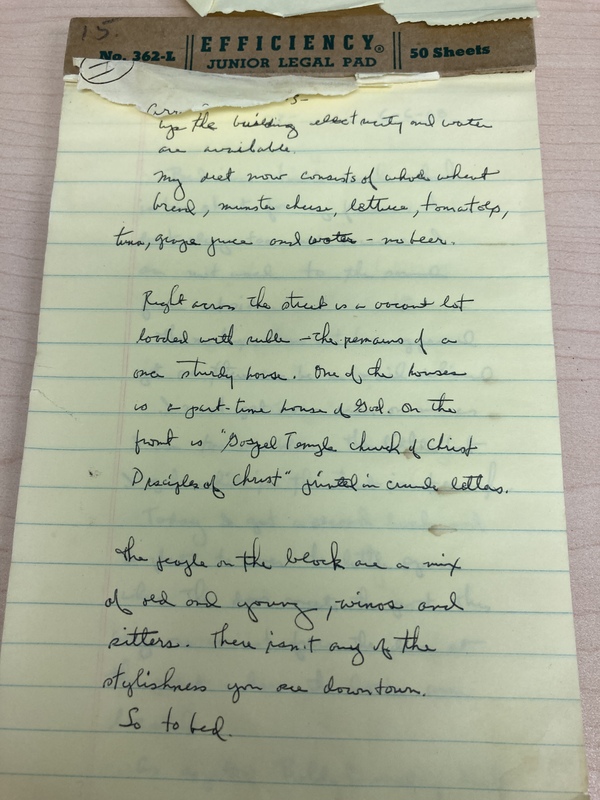 15.
No. 362-L EFFICIENCY® 50 Sheets
JUNIOR LEGAL PAD
1
the building electricity and water
are available.
My diet now consists of whole wheat
bread, munster cheese, lettuce, tomatoes,
tuna, grape juice and water - no beer.
Right across the street is a vacant lot
loaded with ruble - the remains of a
once sturdy house. One of the houses
is a part-time house of God. On the
front is "Gospel Temple church of Christ
Disciples of Christ" printed in crude letters.
The people on the block are a mix
of old and young, winos and
sitters. There isn't any of the
stylishness you see downtown.
So to bed.